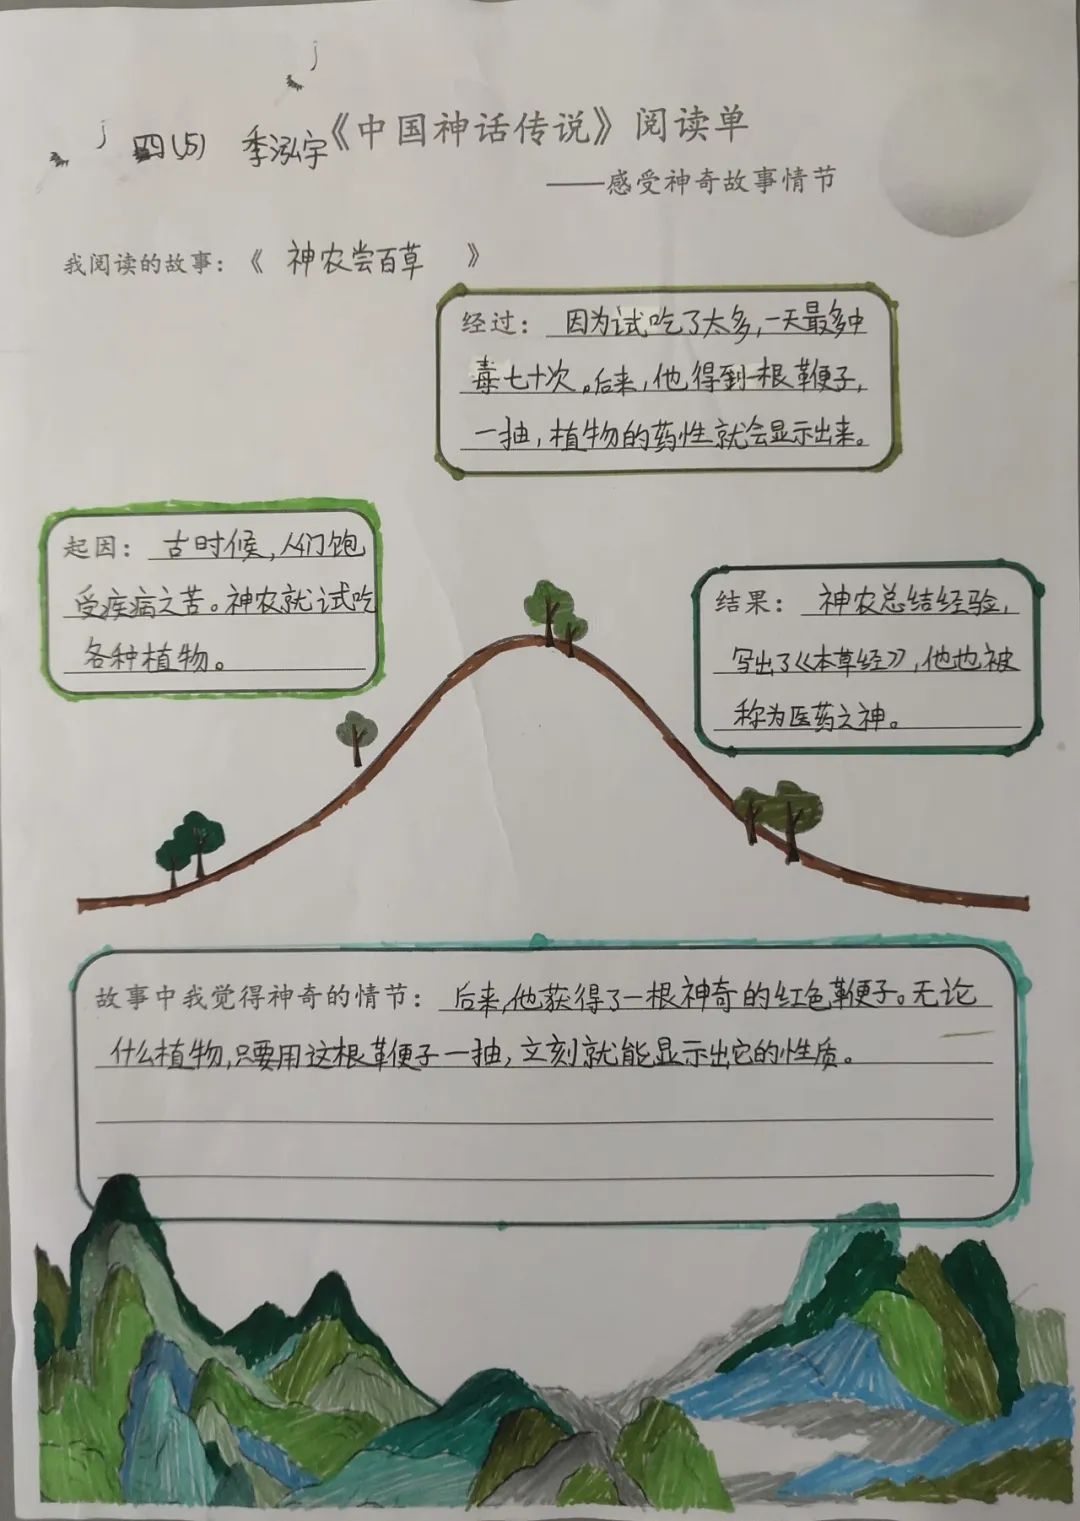 四(5) 季泓宇《中国神话传说》阅读单
——感受神奇故事情节
我阅读的故事：《 神农尝百草 》
经过： 因为试吃了太多，一天最多中
毒七十次。后来，他得到一根鞭子，
一抽，植物的药性就会显示出来。
起因： 古时候，人们饱
受疾病之苦。神农就试吃
各种植物。
结果： 神农总结经验，
写出了《本草经》，他也被
称为医药之神。
故事中我觉得神奇的情节： 后来，他获得了一根神奇的红色鞭子。无论
什么植物，只要用这根鞭子一抽，立刻就能显示出它的性质。